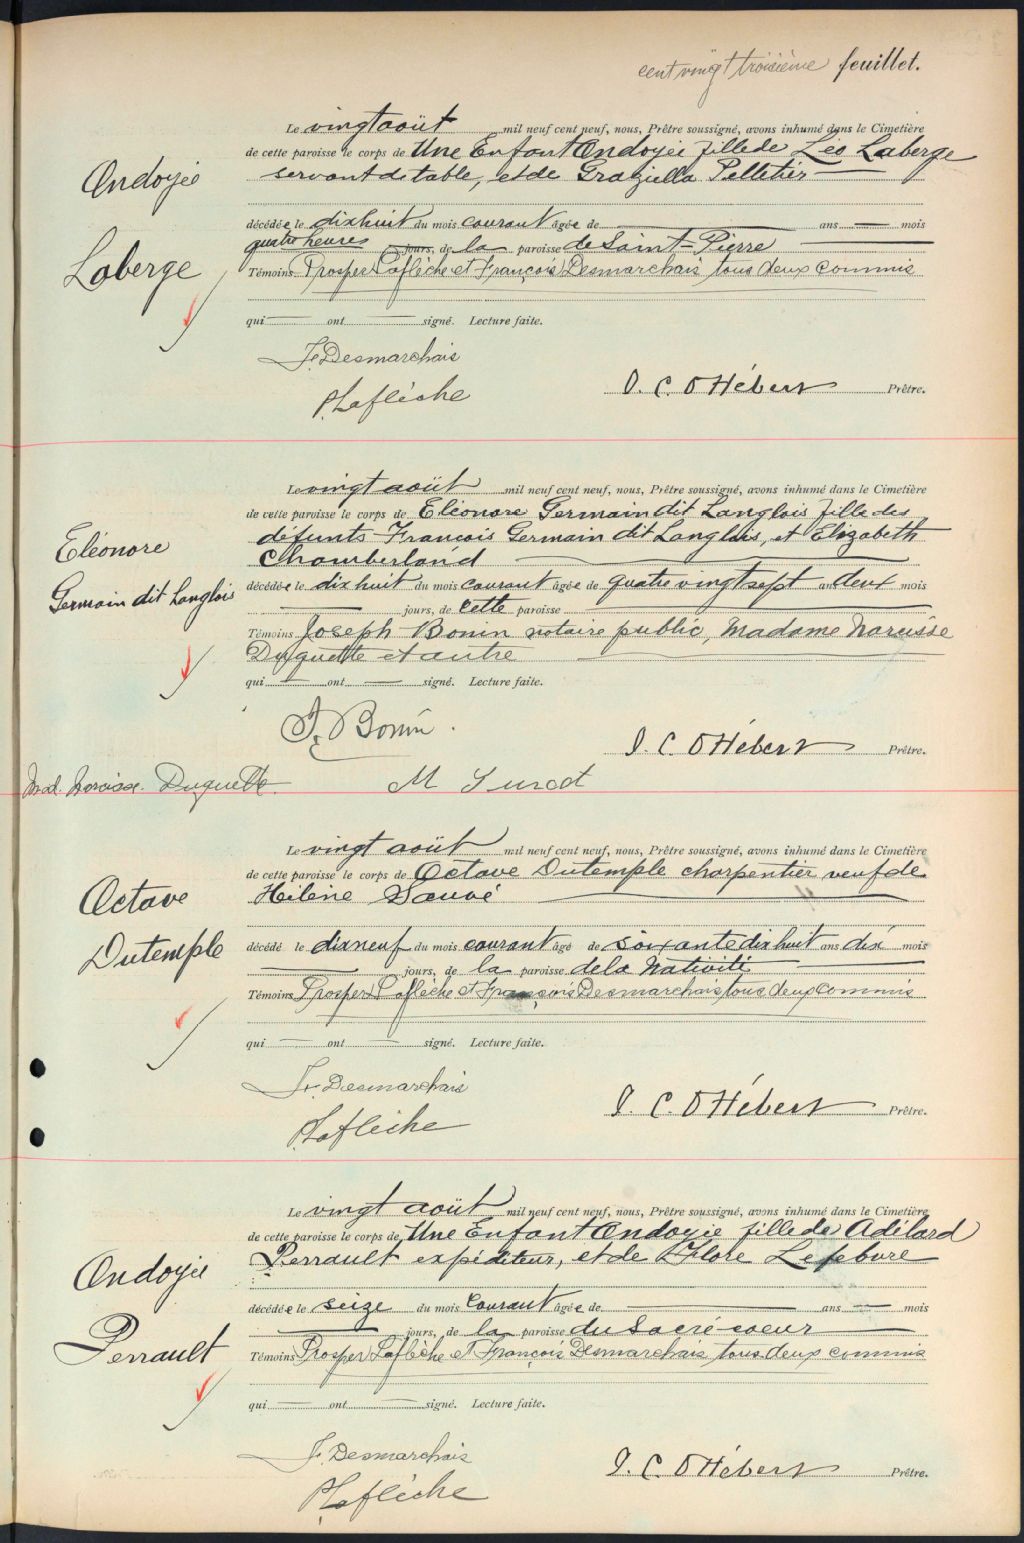 cent vingt troisième feuillet.
Le vingt août mil neuf cent neuf, nous, Prêtre soussigné, avons inhumé dans le Cimetière
de cette paroisse le corps de Une Enfant Ondoyée fille de Léo Laberge
servant de table, et de Graziella Pelletier
Ondoyée
décédée le dix huit du mois courant âgée de ans mois
quatre heures jours, de la paroisse de Saint-Pierre
Laberge
Témoins Prosper Laflèche et François Desmarchais tous deux commis
qui ont signé. Lecture faite.
F. Desmarchais
P. Laflèche
J. C. O Hébert Prêtre.
Le vingt août mil neuf cent neuf, nous, Prêtre soussigné, avons inhumé dans le Cimetière
de cette paroisse le corps de Eléonore Germain dit Langlois fille des
défunts François Germain dit Langlois, et Elizabeth
Chamberland
Eléonore
Germain dit Langlois
décédée le dix huit du mois courant âgée de quatre vingt sept ans deux mois
jours, de cette paroisse
Témoins Joseph Bonin notaire public, Madame Narcisse
Duquette et autre
qui ont signé. Lecture faite.
J. Bonin.
J. C. O Hébert Prêtre.
Mad. Narcisse. Duquette.
M Turcot
Le vingt août mil neuf cent neuf, nous, Prêtre soussigné, avons inhumé dans le Cimetière
de cette paroisse le corps de Octave Dutemple charpentier veuf de
Hélène Sauvé
Octave
Dutemple
décédé le dix neuf du mois courant âgé de soixante dix huit ans dix mois
jours, de la paroisse de la Nativité
Témoins Prosper Laflèche et François Desmarchais tous deux commis
qui ont signé. Lecture faite.
F. Desmarchais
P. Laflèche
J. C. O Hébert Prêtre.
Le vingt août mil neuf cent neuf, nous, Prêtre soussigné, avons inhumé dans le Cimetière
de cette paroisse le corps de Une Enfant Ondoyée fille de Adélard
Perrault expéditeur, et de Flore Lefebvre
Ondoyée
Perrault
décédée le seize du mois courant âgée de ans mois
jours, de la paroisse du Sacré-coeur
Témoins Prosper Laflèche et François Desmarchais tous deux commis
qui ont signé. Lecture faite.
F. Desmarchais
P. Laflèche
J. C. O Hébert Prêtre.